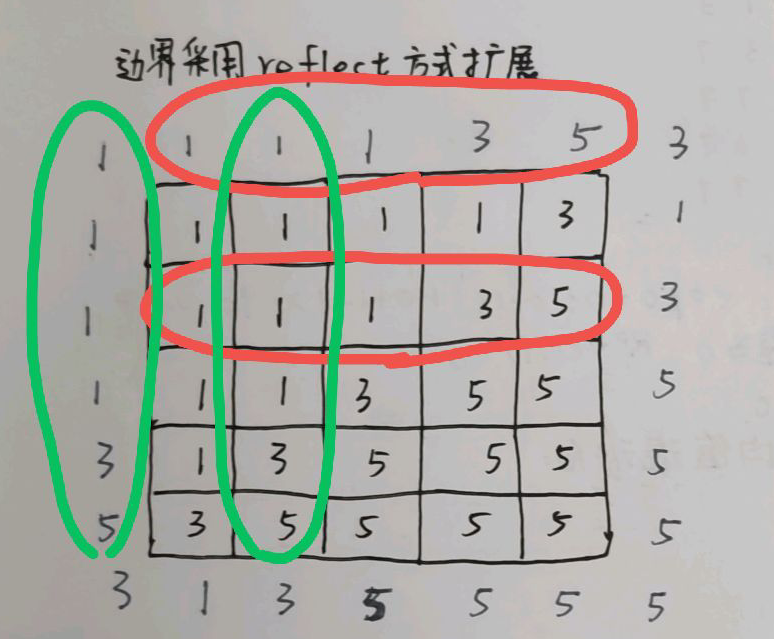 边界采用reflect方式扩展
1 1 1 1 3 5 3
1 1 1 1 1 3 1
1 1 1 1 3 5 3
1 1 1 3 5 5 5
3 1 3 5 5 5 5
5 3 5 5 5 5 5
3 1 3 5 5 5 5